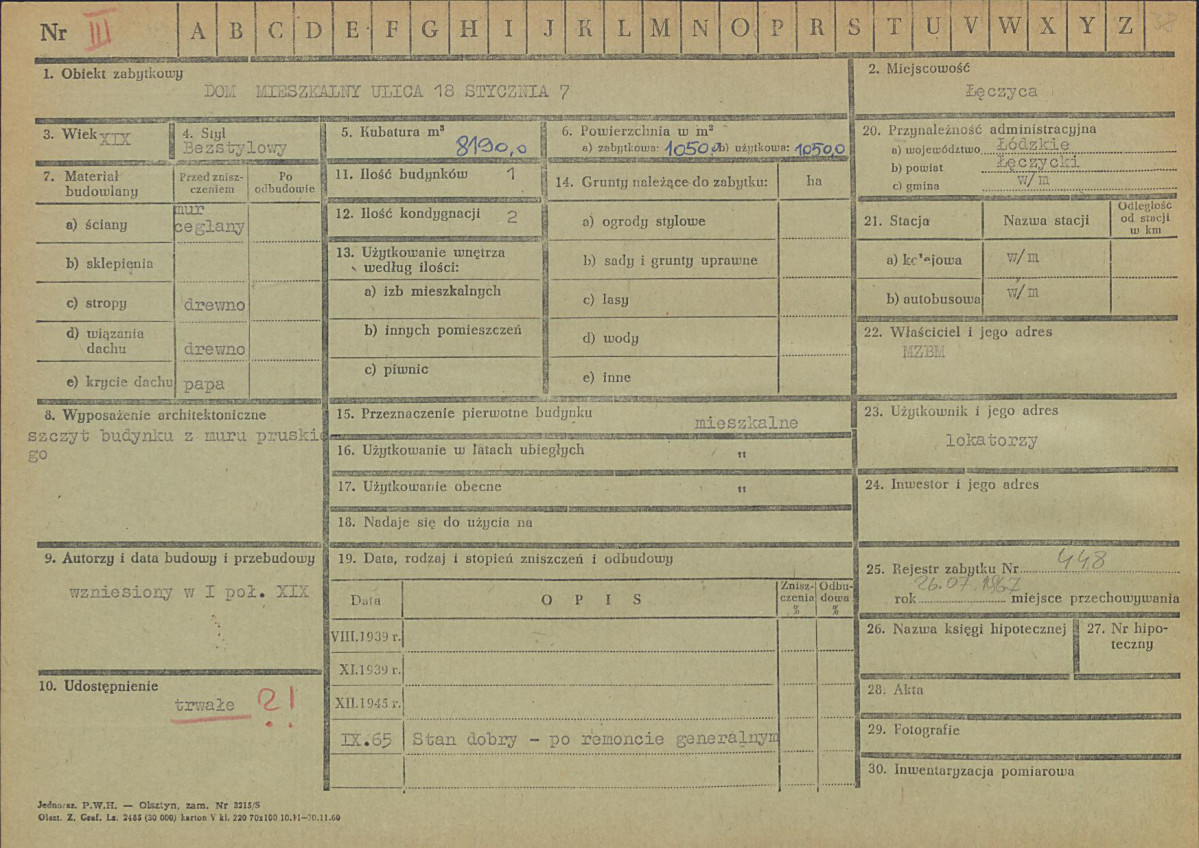 Nr III A B C D E F G H I J K L M N O P R S T U V W X Y Z 38
1. Obiekt zabytkowy
DOM MIESZKALNY ULICA 18 STYCZNIA 7
2. Miejscowość
Łęczyca
3. Wiek XIX
4. Styl
Bezstylowy
5. Kubatura m³
8190,0
6. Powierzchnia w m²
a) zabytkowa: 1050,0 b) użytkowa: 1050,0
20. Przynależność administracyjna
a) województwo Łódzkie
b) powiat Łęczycki
c) gmina w/m
7. Materiał budowlany
Przed znisz-
czeniem
Po
odbudowie
a) ściany mur
ceglany
b) sklepienia
c) stropy drewno
d) wiązania
dachu drewno
e) krycie dachu papa
11. Ilość budynków 1
12. Ilość kondygnacji 2
13. Użytkowanie wnętrza
według ilości:
a) izb mieszkalnych
b) innych pomieszczeń
c) piwnic
14. Grunty należące do zabytku: ha
a) ogrody stylowe
b) sady i grunty uprawne
c) lasy
d) wody
e) inne
21. Stacja Nazwa stacji
Odległość
od stacji
w km
a) kolejowa w/m
b) autobusowa w/m
22. Właściciel i jego adres
MZBM
8. Wyposażenie architektoniczne
szczyt budynku z muru pruskie
go
15. Przeznaczenie pierwotne budynku
mieszkalne
16. Użytkowanie w latach ubiegłych "
17. Użytkowanie obecne "
18. Nadaje się do użycia na
23. Użytkownik i jego adres
lokatorzy
24. Inwestor i jego adres
9. Autorzy i data budowy i przebudowy
wzniesiony w I poł. XIX
10. Udostępnienie
trwałe ?!
19. Data, rodzaj i stopień zniszczeń i odbudowy
Data OPIS
Znisz-
czenia
%
Odbu-
dowa
%
VIII.1939 r.
XI.1939 r.
XII.1945 r.
IX.65 Stan dobry - po remoncie generalnym
25. Rejestr zabytku Nr 448
rok 26.07.1967 miejsce przechowywania
26. Nazwa księgi hipotecznej
27. Nr hipo-
teczny
28. Akta
29. Fotografie
30. Inwentaryzacja pomiarowa
Jednoraz. P.W.H. — Olsztyn, zam. Nr 3215/S
Olszt. Z. Graf. Ls. 2485 (30 000) karton V kl. 220 70x100